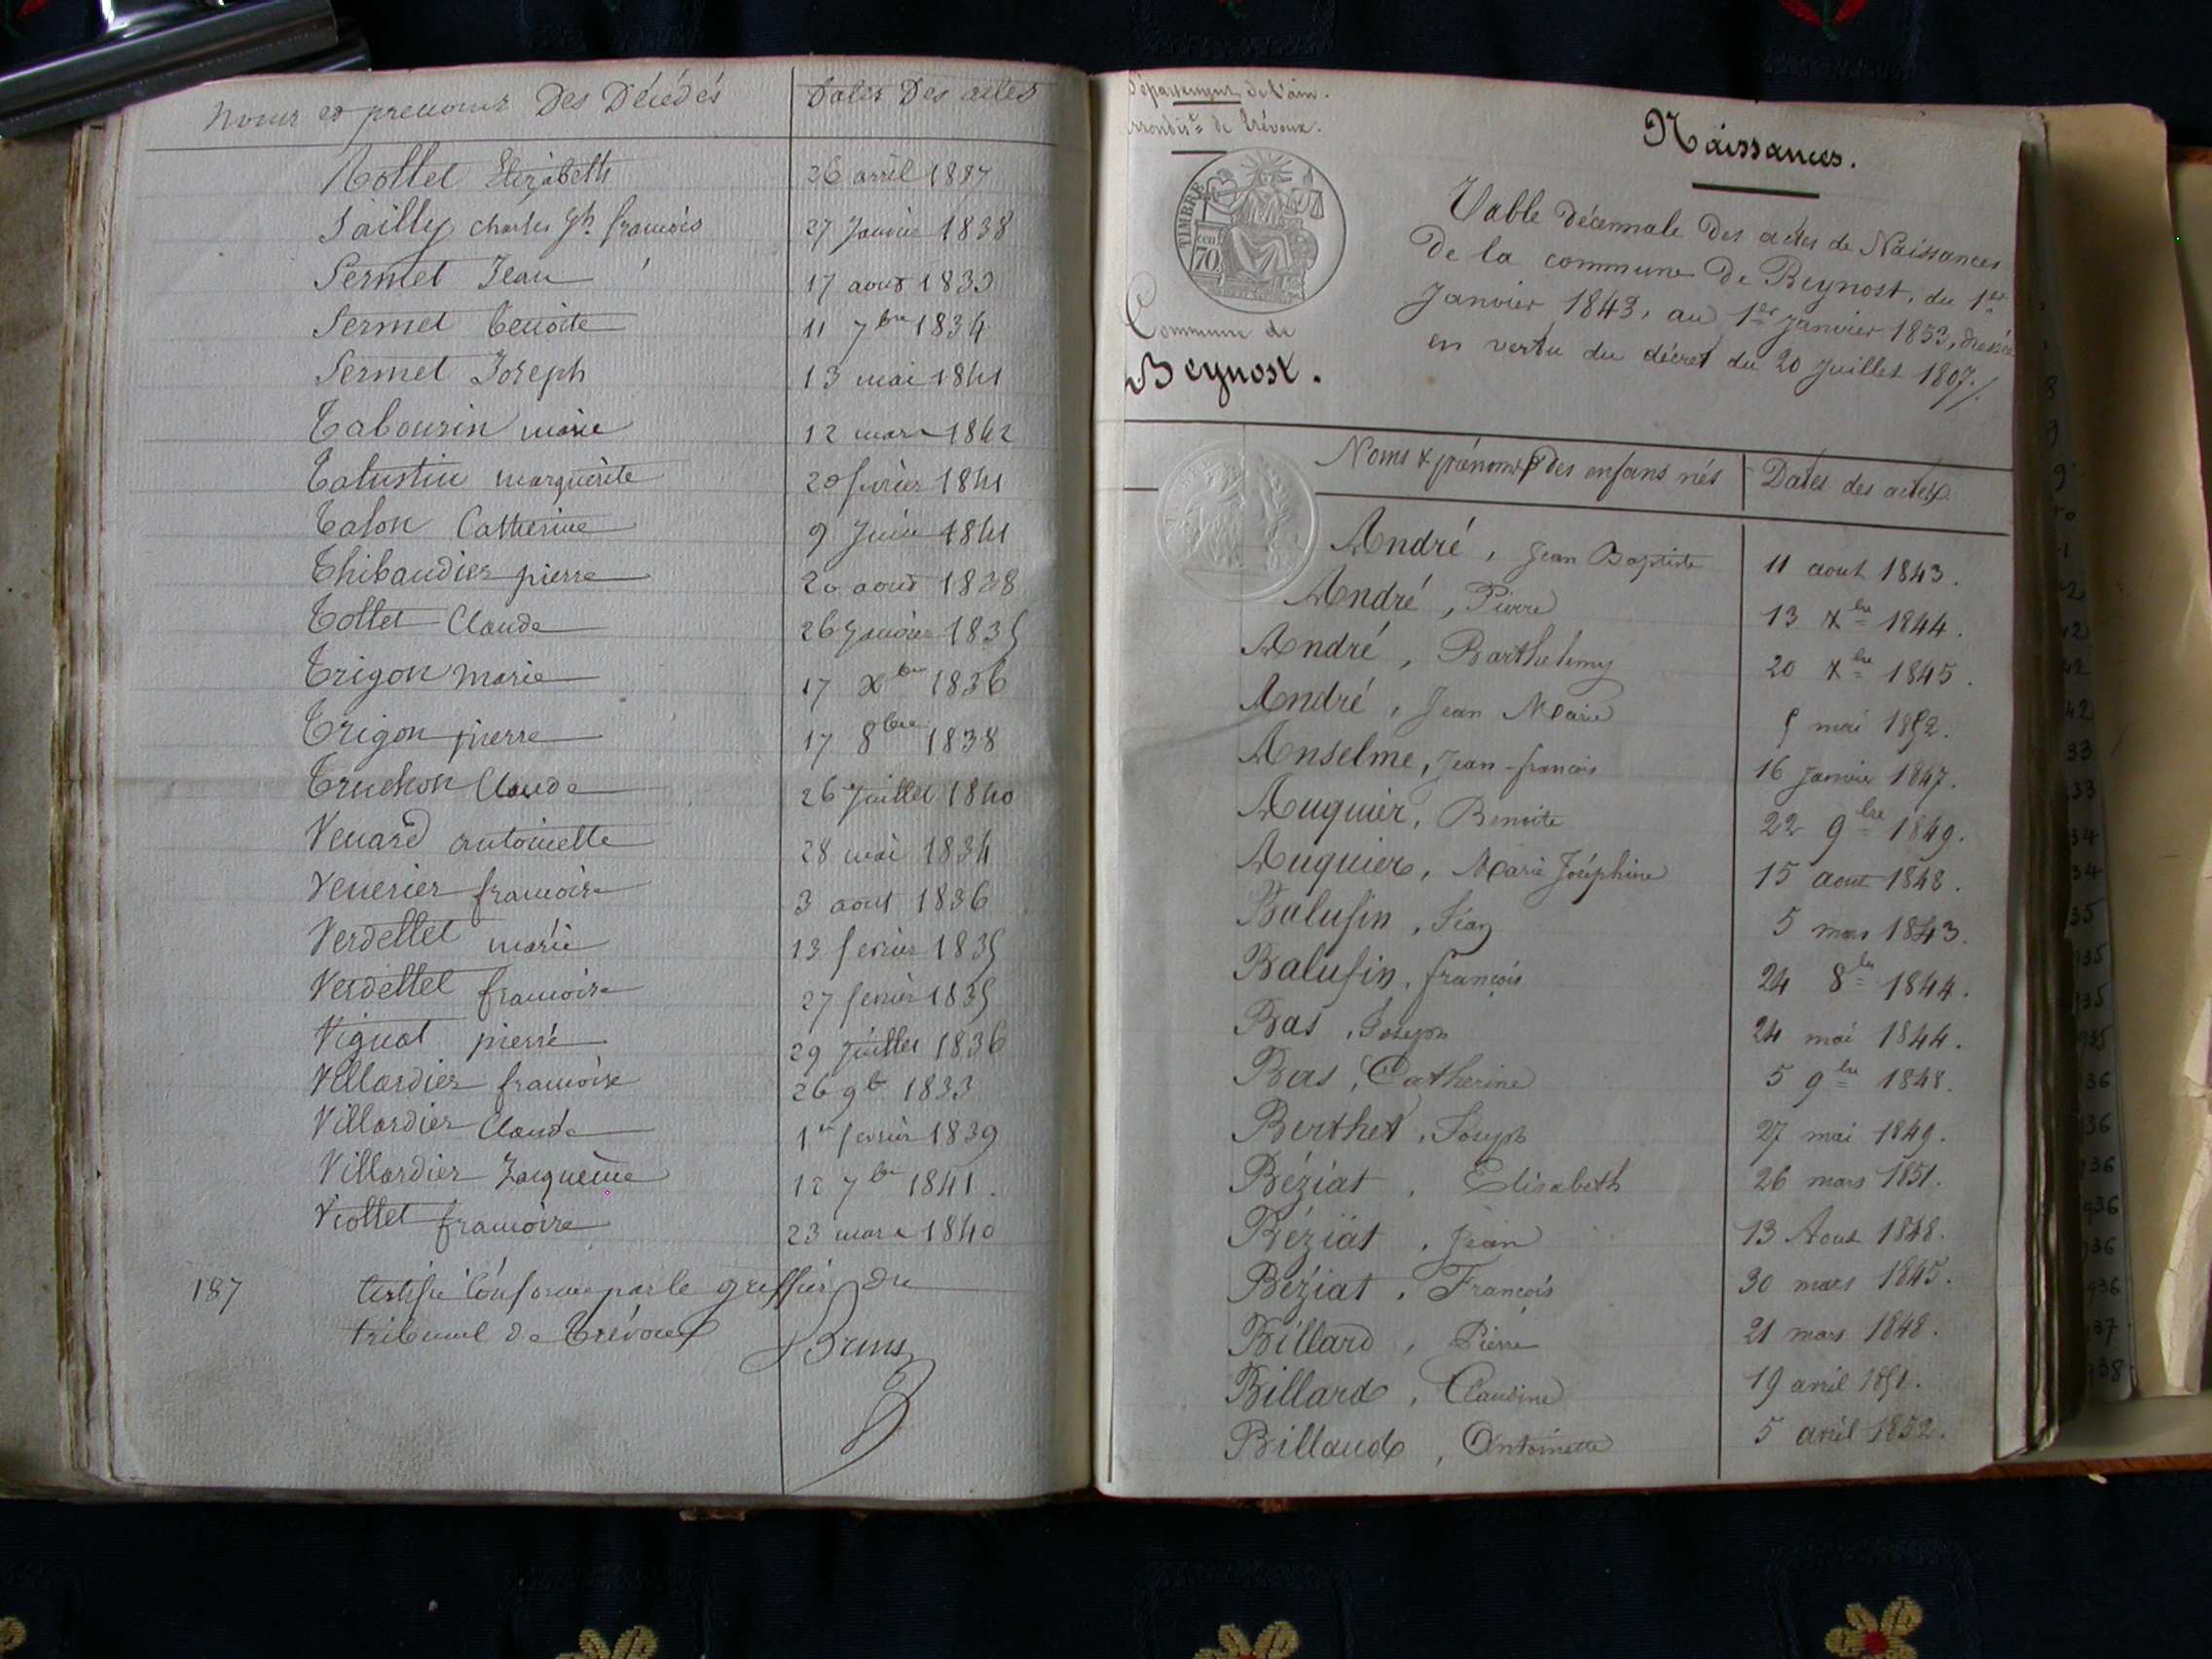 Noms et prenoms Des Décédés Dates Des actes
Nottet Elizabeth 26 avril 1837
Sailly charles Jh. francois 27 Janvier 1838
Sermet Jean 17 aout 1833
Sermet benoite 11 7bre 1834
Sermet Joseph 13 mai 1841
Tabourin marie 12 mars 1842
Talustin marguerite 20 fevrier 1841
Talon Catherine 9 Juin 1841
Thibaudier pierre 20 aout 1838
Tottet Claude 26 Janvier 1835
Trigon marie 17 Xbre 1836
Trigon pierre 17 8bre 1838
Truchon Claude 26 Juillet 1840
Venard antoinette 28 mai 1834
Venerier francoise 3 aout 1836
Verdellet marie 13 fevrier 1835
Verdellet francoise 27 fevrier 1835
Vignat pierre 29 Juillet 1836
Villardier francoise 26 9b 1833
Villardier Claude 1er fevrier 1839
Villardier Jacqueme 12 7bre 1841.
Viottet francoise 23 mars 1840
187 Certifié Conforme par le greffier du
tribunal de Trévoux
Bruns
Département de l'ain.
arrondist de Trévoux.
TIMBRE
70
Commune de
Beynost.
Naissances.
Table décennale des actes de Naissances
de la commune de Beynost, du 1er
Janvier 1843, au 1er Janvier 1853, dressée
en vertu du décret du 20 Juillet 1807./.
Noms & prénoms des enfans nés Dates des actes
André, Jean Baptiste 11 aout 1843.
André, Pierre 13 Xbre 1844.
André, Barthelemy 20 Xbre 1845.
André, Jean Marie 5 mai 1852.
Anselme, Jean-francois 16 Janvier 1847.
Auquier, Benoite 22 9bre 1849.
Auquier, Marie Joséphine 15 aout 1848.
Balufin, Jean 5 mars 1843.
Balufin, françois 24 8bre 1844.
Bas, Joseph 24 mai 1844.
Bas, Catherine 5 9bre 1848.
Berthet, Joseph 27 mai 1849.
Béziat, Elisabeth 26 mars 1851.
Béziat, Jean 13 Aout 1848.
Béziat, François 30 mars 1845.
Billard, Pierre 21 mars 1848.
Billard, Claudine 19 avril 1851.
Billaud, Antoinette 5 avril 1852.